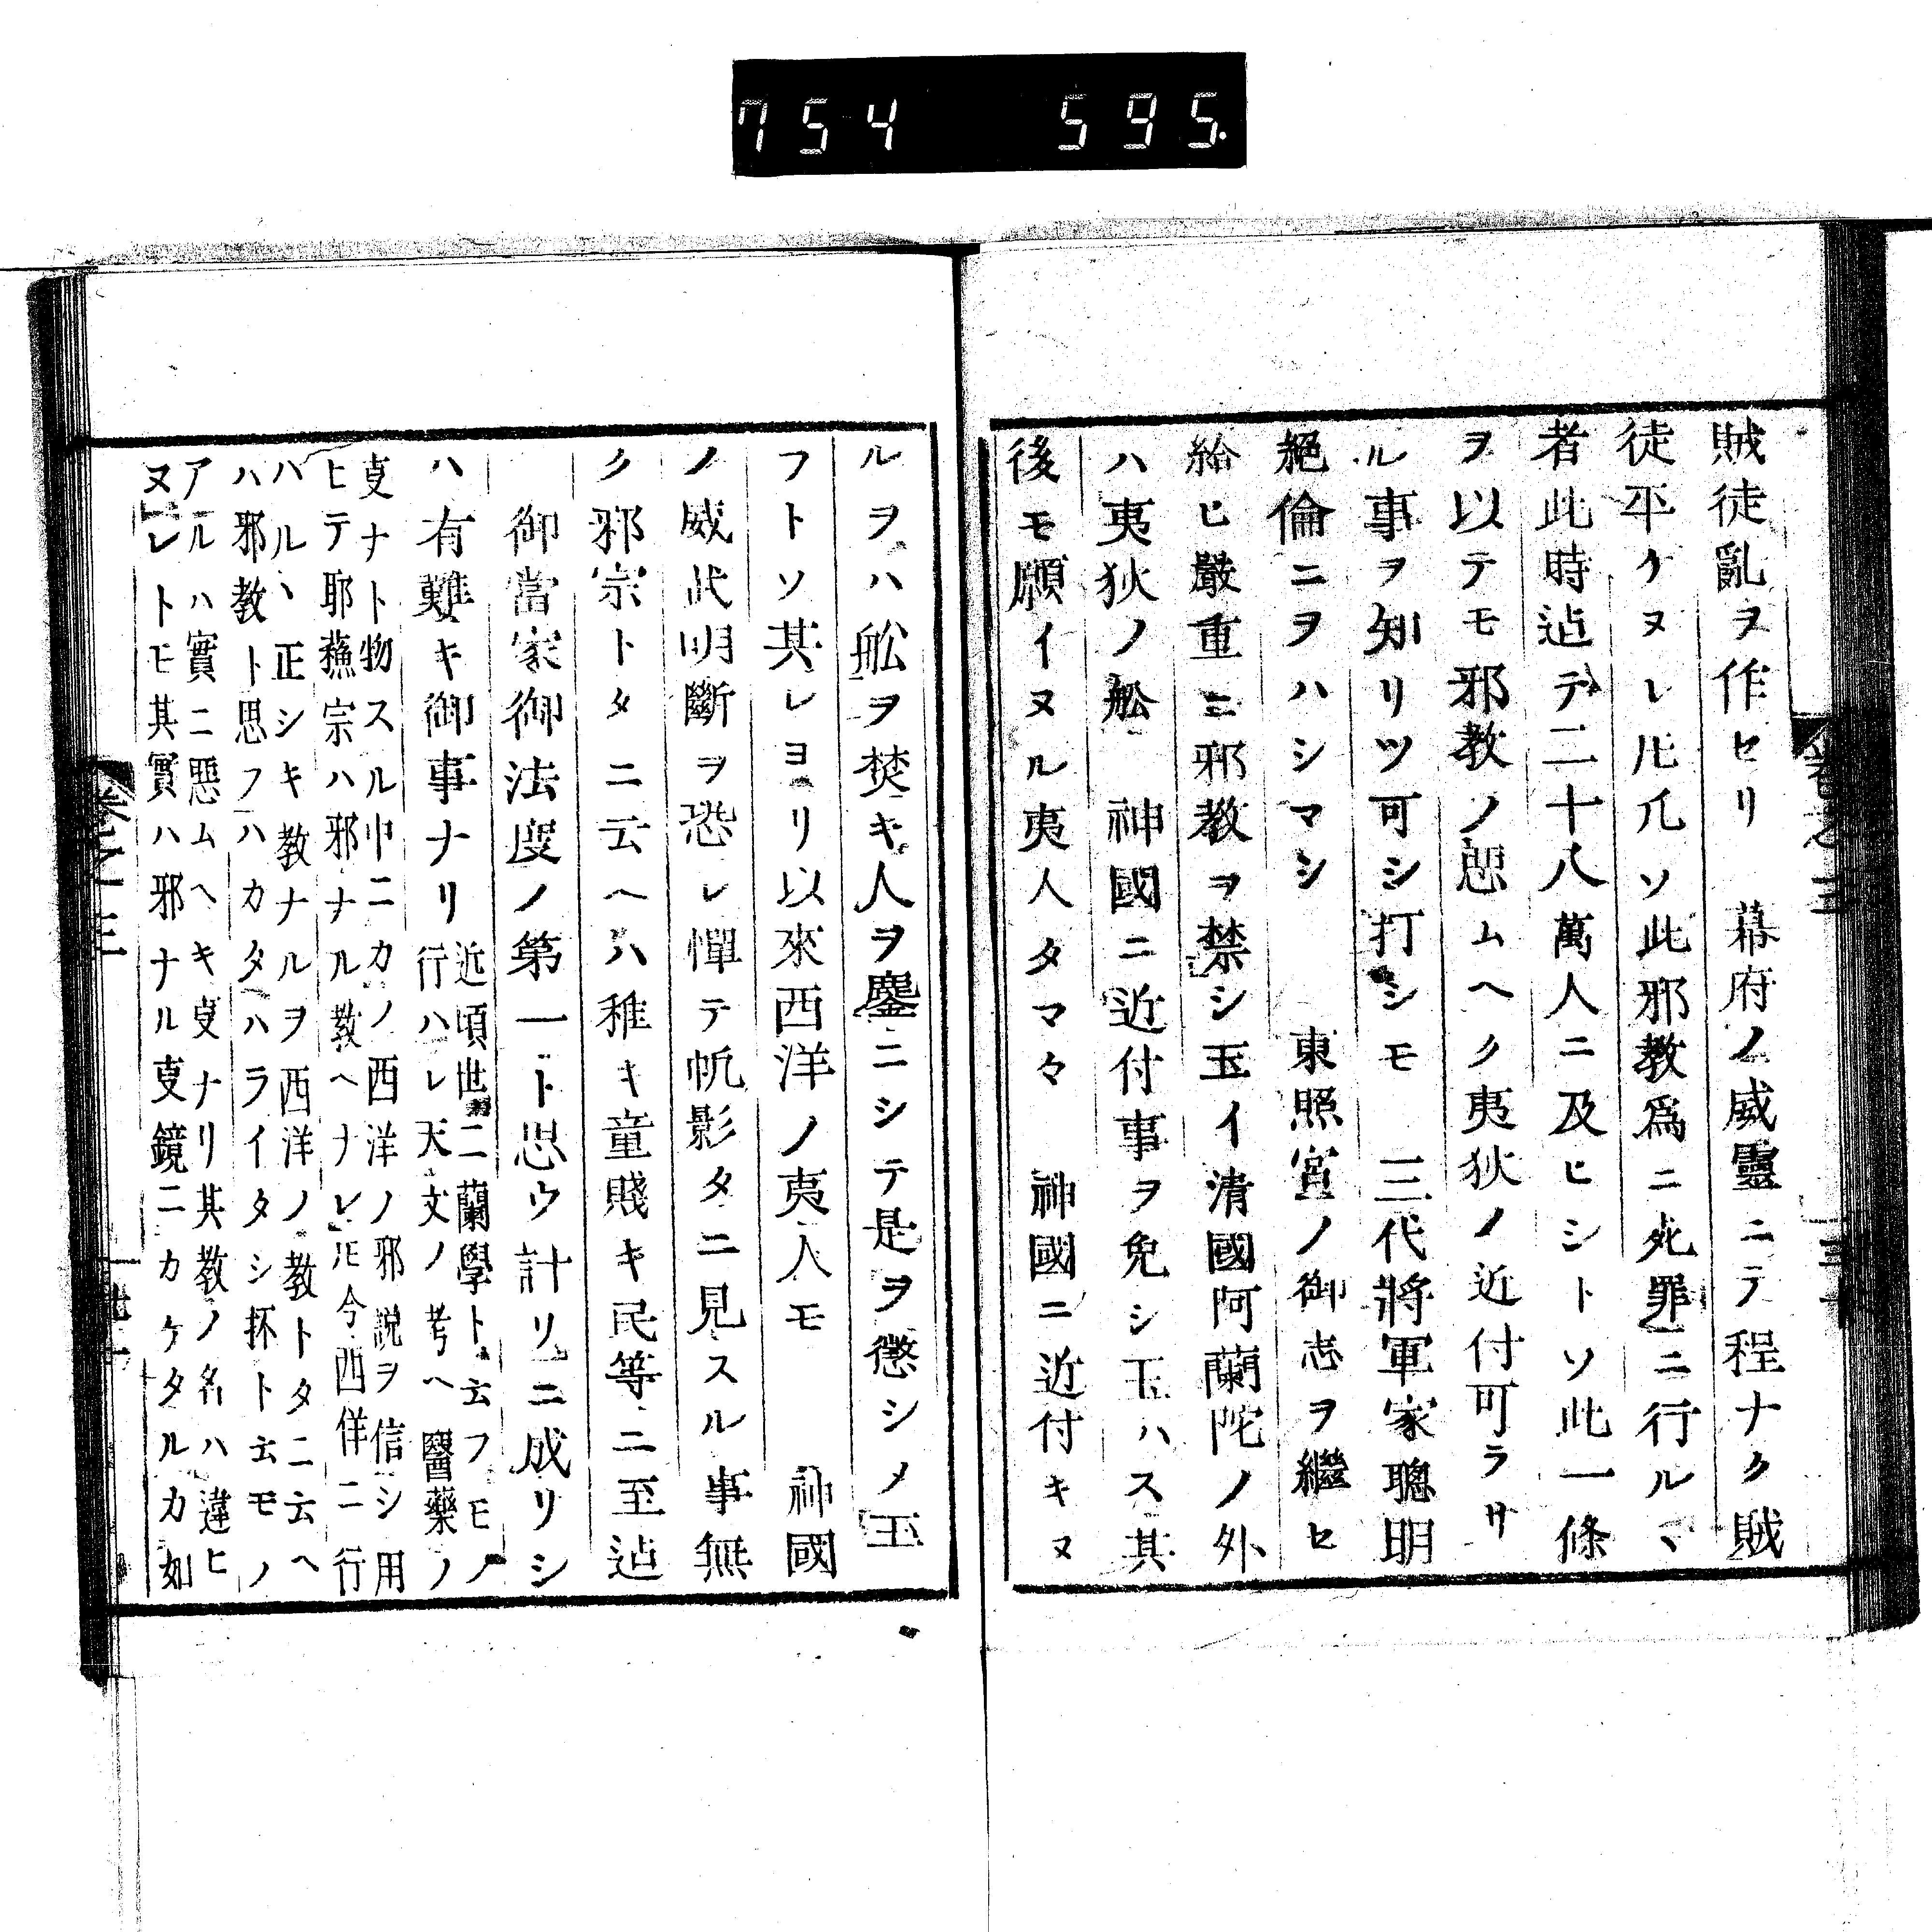 754 595.
賊徒亂ヲ作セリ 幕府ノ威靈ニテ程ナク賊
徒平ケヌレ𪜈凡ソ此邪教爲ニ死罪ニ行ルヽ
者此時迠テ二十八萬人ニ及ヒシトソ此一條
ヲ以テモ邪教ノ惡ムヘク夷狄ノ近付可ラサ
ル事ヲ知リツ可シ打シモ 三代將軍家聰明
絕倫ニヲハシマシ 東照宮ノ御志ヲ繼セ
給ヒ嚴重ニ邪教ヲ禁シ玉イ清國阿蘭陀ノ外
ハ夷狄ノ舩 神國ニ近付事ヲ免シ玉ハス其
後モ願イヌル夷人タマ々 神國ニ近付キヌ
ルヲハ舩ヲ焚キ人ヲ鏖ニシテ是ヲ懲シメ玉
フトソ其レヨリ以來西洋ノ夷人モ 神國
ノ威武明斷ヲ恐レ憚テ帆影タニ見スル事無
ク邪宗トタニ云ヘハ稚キ童賤キ民等ニ至迠
御當家御法度ノ第一ト思ウ計リニ成リシ
ハ有難キ御事ナリ
近頃世ニ蘭學ト云フモノ
行ハレ天文ノ考ヘ醫藥ノ
叓ナト物スル中ニカノ西洋ノ邪説ヲ信シ用
ヒテ耶蘓宗ハ邪ナル教ヘナレ𪜈今西洋ニ行
ハルヽ正シキ教ナルヲ西洋ノ教トタニ云ヘ
ハ邪教ト思フハカタハライタシ抔ト云モノ
アルハ實ニ惡ムヘキ叓ナリ其教ノ名ハ違ヒ
ヌレトモ其實ハ邪ナル叓鏡ニカケタルカ如
卷之三